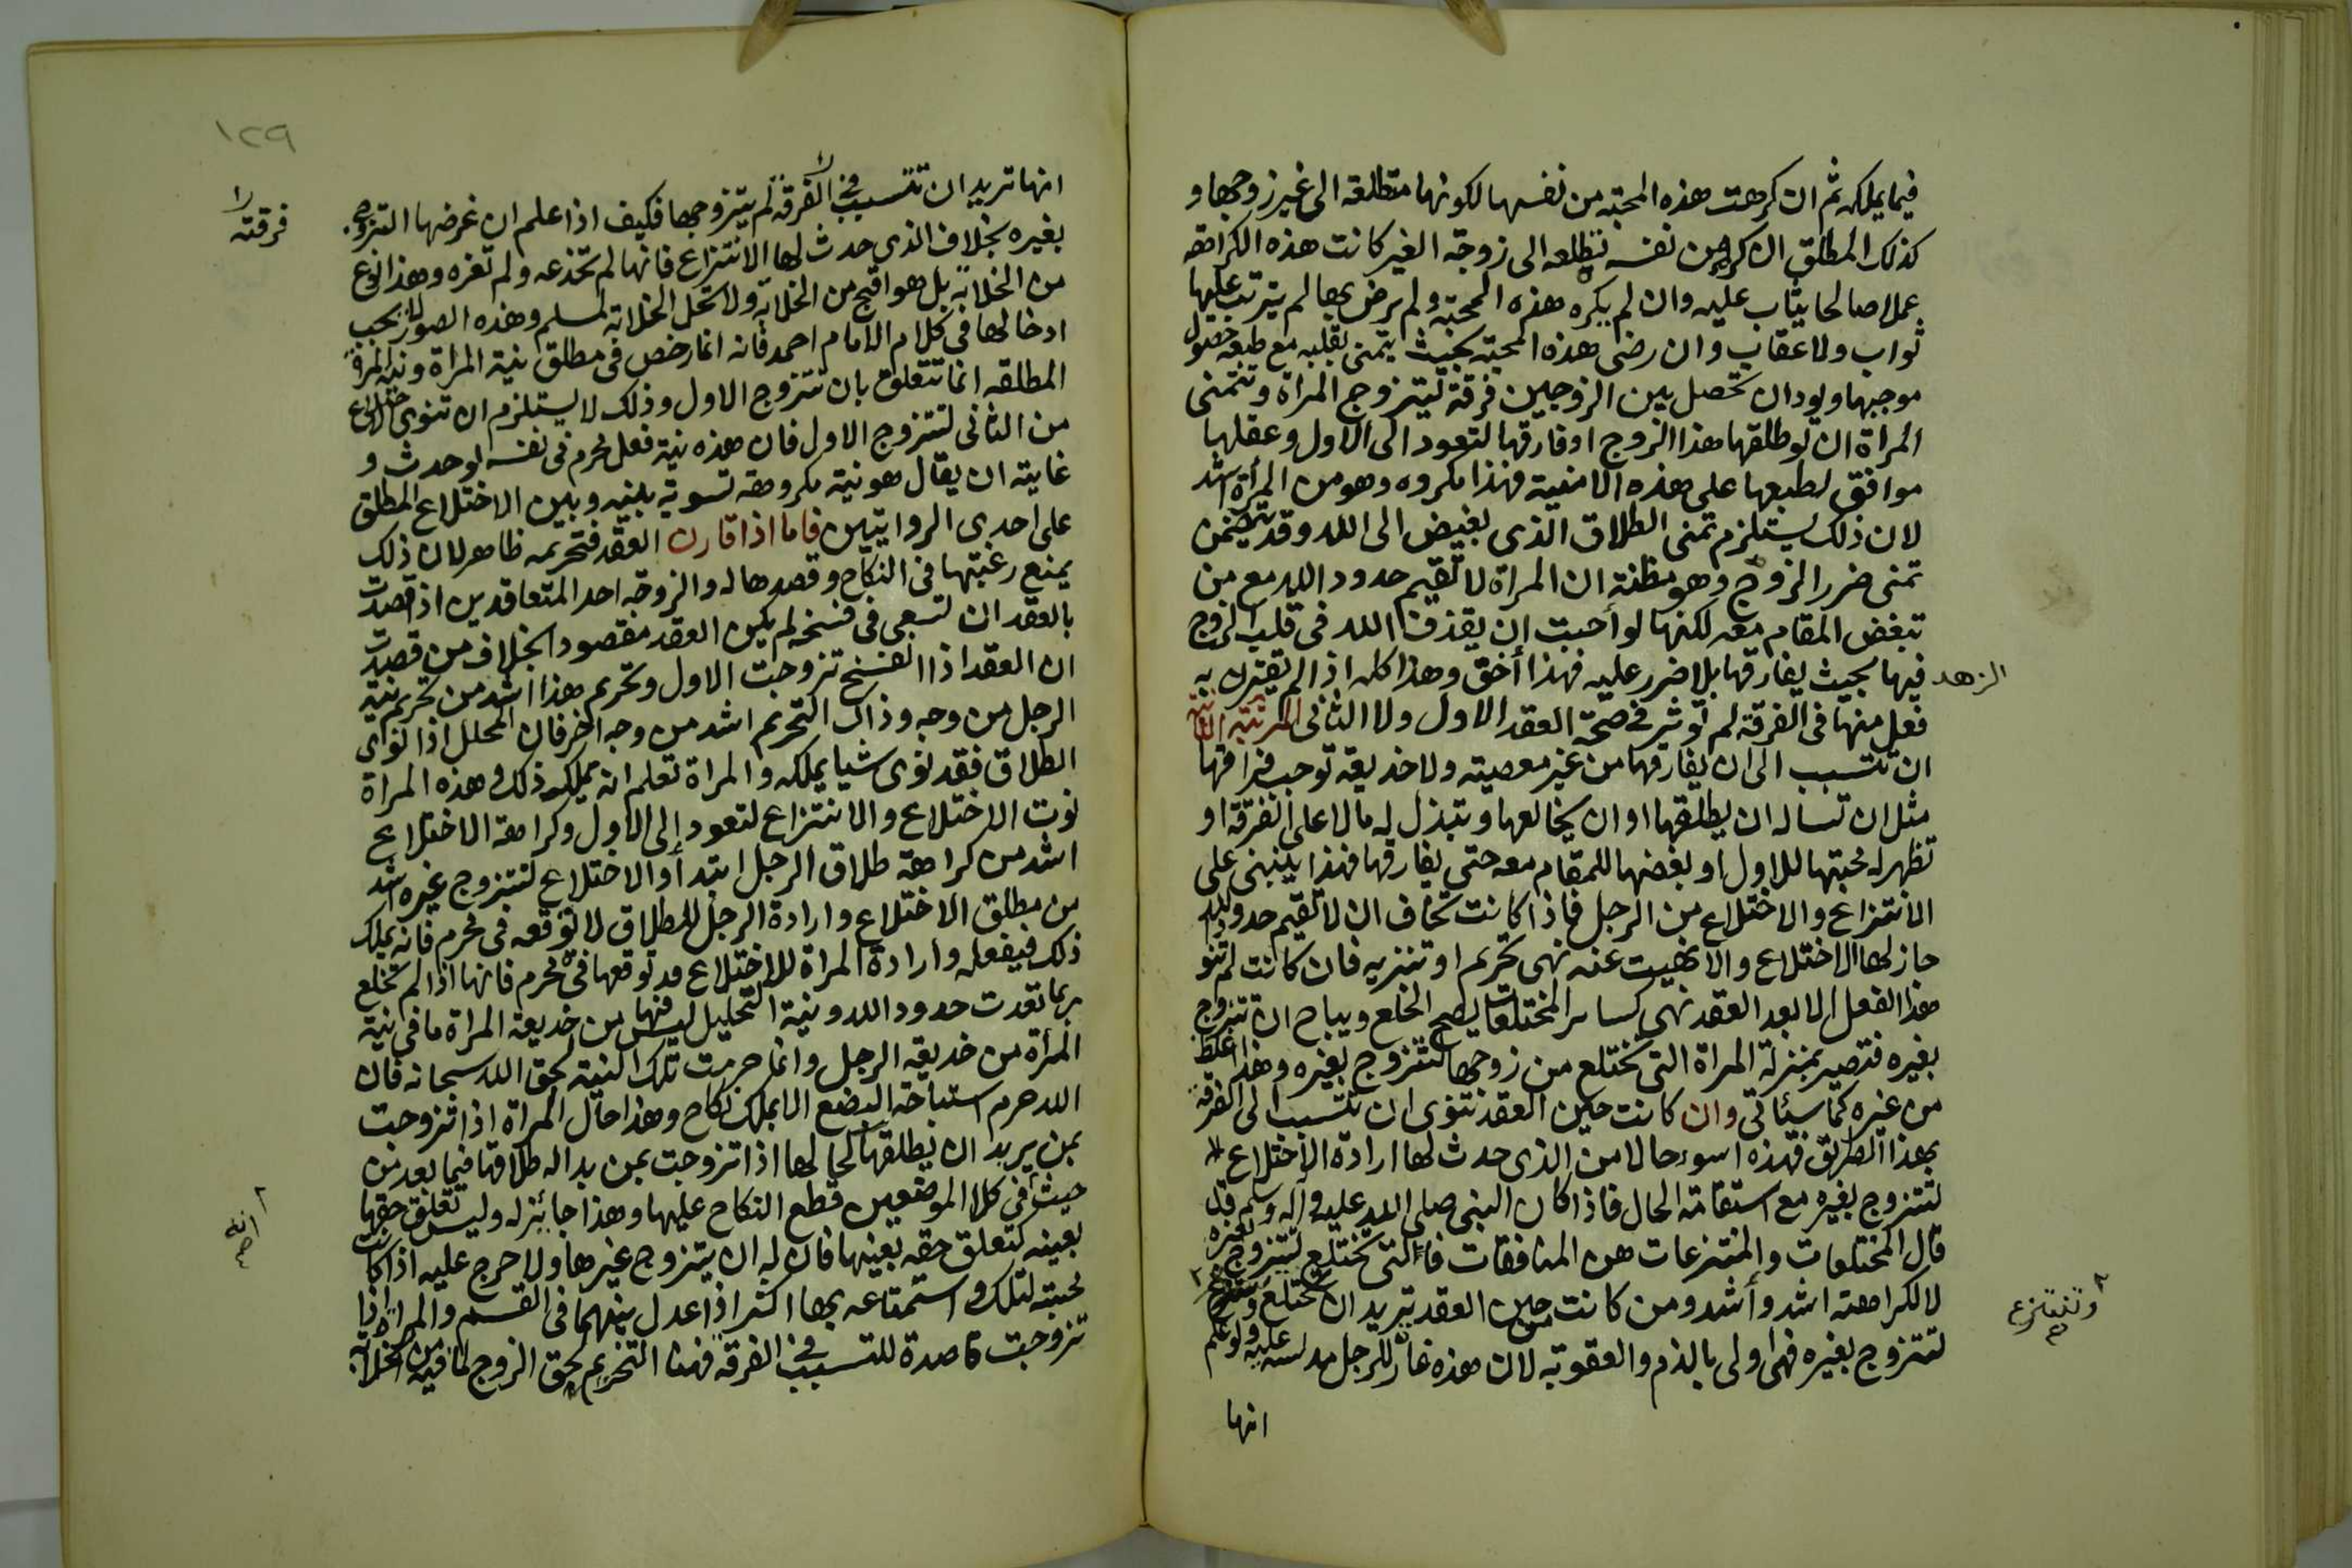 فيما يملكه ثم ان كرهت هذه المحبة من نفسها لكونها متطلعة الى غير زوجها و
كذلك المطلق ان كره من نفسه تطلعه الى زوجة الغير كانت هذه الكراهة
عملا صالحا يثاب عليه وان لم يكره هذه المحبة ولم يرض بها لم يترتب عليها
ثواب ولا عقاب وان رضى هذه المحبة بحيث يتمنى بقلبه مع طبعه حصول
موجبها ويود ان تحصل بين الزوجين فرقة ليتزوج المراة وتتمنى
المراة ان لو طلقها هذا الزوج او فارقها لتعود الى الاول وعقلها
موافق لطبعها على هذه الامنية فهذا مكروه وهو من المرأة اشد
لان ذلك يستلزم تمنى الطلاق الذى بغيض الى الله وقد يتضمن
تمنى ضرر الزوج وهو مظنة ان المراة لا تقيم حدود الله مع من
تبغض المقام معه لكنها لو أحبت ان يقذف الله فى قلب الزوج
الزهد فيها بحيث يفارقها بلا ضرر عليه فهذا أخف وهذا كله اذا لم يقترن به
فعل منها فى الفرقة لم تؤثر فى صحة العقد الاول ولا الثانى المرتبة الثانية
ان تتسبب الى ان يفارقها من غير معصية ولا خديعة توجب فراقها
مثل ان تساله ان يطلقها او ان يخالعها وتبذل له مالا على الفرقة او
تظهر له محبتها للاول او بغضها للمقام معه حتى يفارقها فهذا ينبنى على
الانتزاع والاختلاع من الرجل فاذا كانت تخاف ان لا تقيم حدود الله
جاز لها الاختلاع والا نهيت عنه نهى تحريم او تنزيه فان كانت لم تنو
هذا الفعل الا بعد العقد فهى كسائر المختلعات يصح الخلع ويباح ان تتزوج
بغيره فتصير بمنزلة المراة التى تختلع من زوجها لتتزوج بغيره وهذا اغلظ
من غيره كما سيأتى وان كانت حين العقد تنوى ان تتسبب الى الفرقة
بهذا الطريق فهذه اسوء حالا من الذى حدث لها ارادة الاختلاع
لتتزوج بغيره مع استقامة الحال فاذا كان النبى صلى الله عليه وآله وسلم قد
قال المختلعات والمنتزعات هن المنافقات فالتى تختلع لتتزوج بغيره
لا لكراهته اشد وأشد ومن كانت من حين العقد تريد ان تختلع وتنتزع
وتنتزع صح
لتتزوج بغيره فهى اولى بالذم والعقوبة لان هذه غارة للرجل مدلسة عليه ولو علم
انها
١٢٩
انها تريد ان تتسبب فى الفرقة لم يتزوجها فكيف اذا علم ان غرضها التزوج
فرقته
بغيره بخلاف الذى حدث لها الانتزاع فانها لم تخدعه ولم تغره وهذا نوع
من الخلابة بل هو اقبح من الخلابة ولا تحل الخلابة لمسلم وهذه الصور لا يجب
ادخالها فى كلام الامام احمد فانه انما رخص فى مطلق نية المراة ونية المراة
المطلقه انما تتعلق بان تتزوج الاول وذلك لا يستلزم ان تنوى اختلاع
من الثانى لتتزوج الاول فان هذه نية فعل محرم فى نفسه لو حدث و
غايته ان يقال هو نية مكروهة تسوية بينه وبين الاختلاع المطلق
على احدى الروايتين فاما اذا قارن العقد فتحريمه ظاهر لان ذلك
يمنع رغبتها فى النكاح وقصدها له والزوجة احد المتعاقدين اذا قصدت
بالعقد ان تسعى فى فسخه لم يكن العقد مقصودا بخلاف من قصدت
ان العقد اذا انفسخ تزوجت الاول وتحريم هذا اشد من تحريم نية
الرجل من وجه وذاك التحريم اشد من وجه اخر فان المحلل اذا نوى
الطلاق فقد نوى شيا يملكه والمراة تعلم انه يملك ذلك وهذه المراة
نوت الاختلاع والانتزاع لتعود إلى الاول وكراهة الاختلاع
اشد من كراهة طلاق الرجل ابتداً والاختلاع لتتزوج غيره اشد
من مطلق الاختلاع وارادة الرجل للطلاق لا توقعه فى محرم فانه يملك
ذلك فيفعله وارادة المراة للاختلاع قد توقعها فى محرم فانها اذا لم تختلع
ربما تعدت حدود الله ونية التحليل ليس فيها من خديعة المراة ما فى نية
المرأة من خديعة الرجل وانما حرمت تلك النية لحق الله سبحانه فان
الله حرم استباحة البضع الا بملك نكاح وهذا حال المراة اذا تزوجت
بمن يريد ان يطلقها كحالها اذا تزوجت بمن بدا له طلاقها فيما بعد من
حيث أنه فى كلا الموضعين قطع النكاح عليها وهذا جائز له وليس تعلق حقها
انه صح
بعينه كتعلق حقه بعينها فان له ان يتزوج غيرها ولا حرج عليه اذا كانت
محبته لتلك واستمتاعه بها اكثر اذا عدل بينهما فى القسم والمراة اذا
تزوجت قاصدة للتسبب فى الفرقة فهذا التحريم لحق الزوج لما فيه من الخلابة